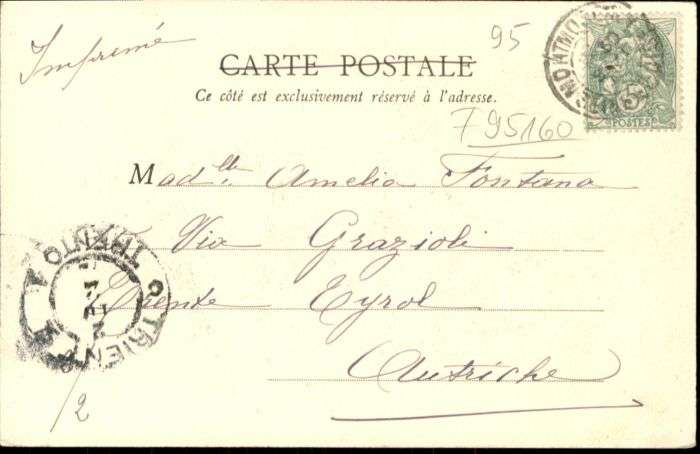 Imprimé
95
CARTE POSTALE
Ce côté est exclusivement réservé à l'adresse.
F 95160
Madelle Amelia Fontana
Via Grazioli
Trente Tyrol
Autriche
POSTES
TRIENT
TRENTO
/2